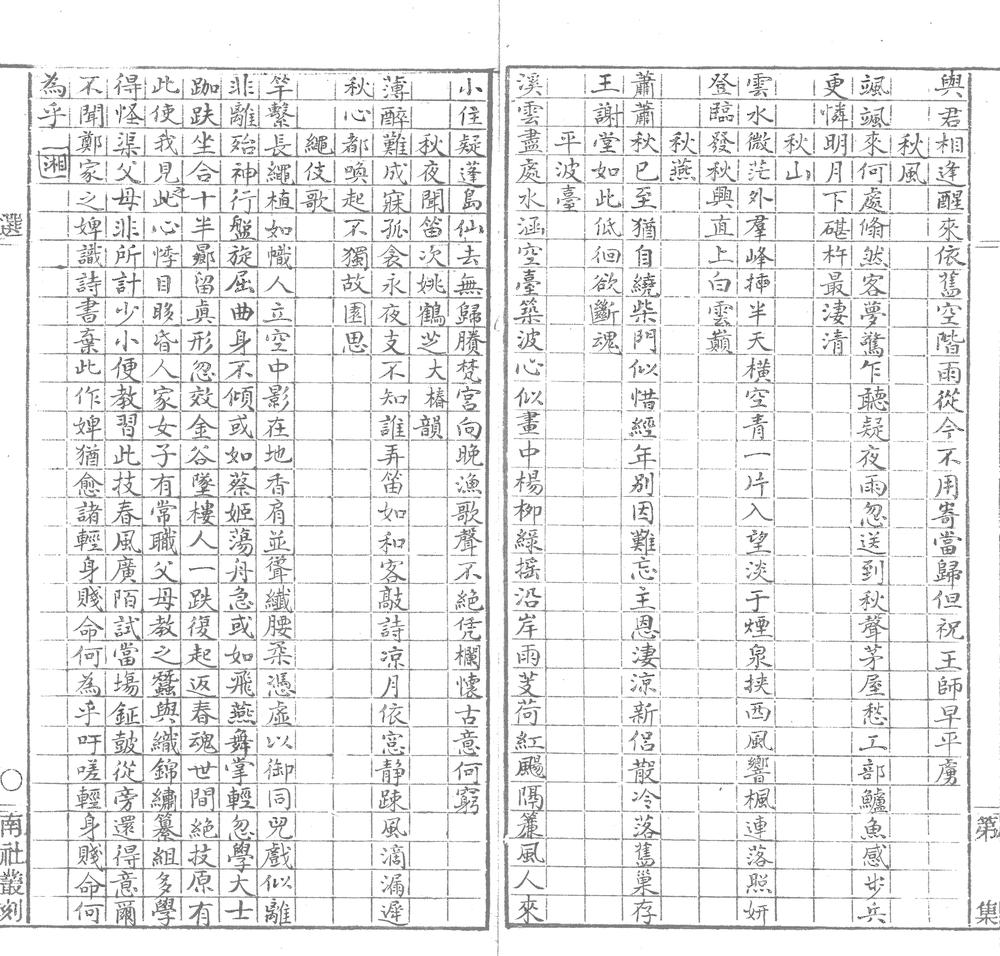 第　集
與君相逢醒來依舊空階雨從今不用寄當歸但祝王師早平虜
秋風
颯颯來何處翛然客夢驚乍聽疑夜雨忽送到秋聲茅屋愁工部鱸魚感步兵
更憐明月下碪杵最淒清
秋山
雲水微茫外羣峰揷半天橫空青一片入望淡于煙泉挾西風響楓連落照妍
登臨發秋興直上白雲巔
秋燕
蕭蕭秋已至猶自繞柴門似惜經年別因難忘主恩淒涼新侶散冷落舊巢存
王謝堂如此低徊欲斷魂
平波臺
溪雲盡處水涵空臺築波心似畫中楊柳綠搖沿岸雨芰荷紅颺隔簾風人來
小住疑蓬島仙去無歸賸梵宮向晚漁歌聲不絕凭欄懷古意何窮
秋夜聞笛次姚鶴芝大樁韻
薄醉難成寐孤衾永夜支不知誰弄笛如和客敲詩凉月依窓靜踈風滴漏遲
秋心都喚起不獨故園思
繩伎歌
竿繫長繩植如幟人立空中影在地香肩並聳纖腰柔憑虛以御同兒戲似離
非離殆神行盤旋屈曲身不傾或如蔡姬蕩舟急或如飛燕舞掌輕忽學大士
跏趺坐合十半晷留眞形忽效金谷墜樓人一跌復起返春魂世間絕技原有
此使我見此心悸目眵昏人家女子有常職父母教之蠶與織錦繡纂組多學
得怪渠父母非所計少小便教習此技春風廣陌試當場鉦鼓從旁還得意爾
不聞鄭家之婢識詩書棄此作婢猶愈諸輕身賤命何為乎吁嗟輕身賤命何
為乎　湘
選　〇　南社叢刻